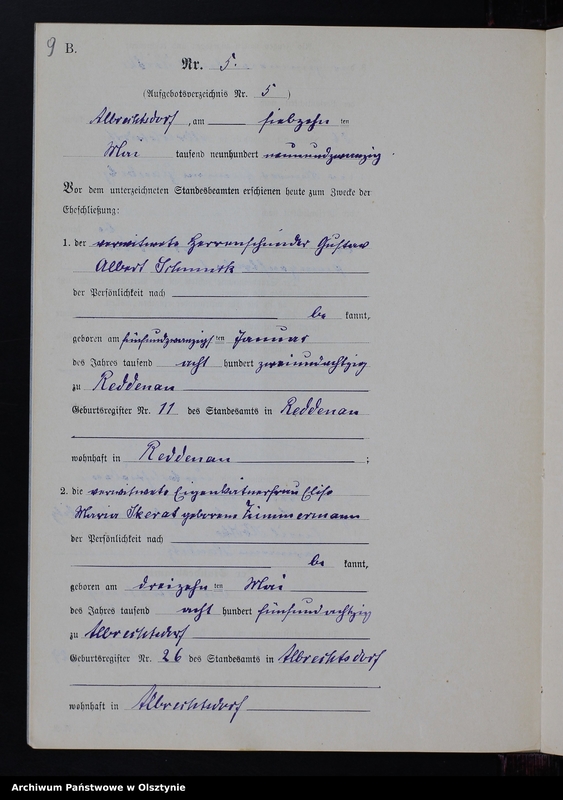 9 B.
Nr. 5.
(Aufgebotsverzeichnis Nr. 5)
Albrechtsdorf, am siebzehn ten
Mai tausend neunhundert neunundzwanzig.
Vor dem unterzeichneten Standesbeamten erschienen heute zum Zwecke der
Eheschließung:
1. der verwitwete Herrenschneider Gustav
Albert
der Persönlichkeit nach
be kannt,
geboren am fünfundzwanzigsten Januar
des Jahres tausend acht hundert zweiundachtzig
zu Reddenau
Geburtsregister Nr. 11 des Standesamts in Reddenau
wohnhaft in Reddenau ;
2. die verwitwete Eigenkätnerfrau Elise
Maria Skerat geborene Zimmermann
der Persönlichkeit nach
be kannt,
geboren am dreizehn ten Mai
des Jahres tausend acht hundert fünfundachtzig
zu Albrechtsdorf
Geburtsregister Nr. 26 des Standesamts in Albrechtsdorf
wohnhaft in Albrechtsdorf
Archiwum Państwowe w Olsztynie